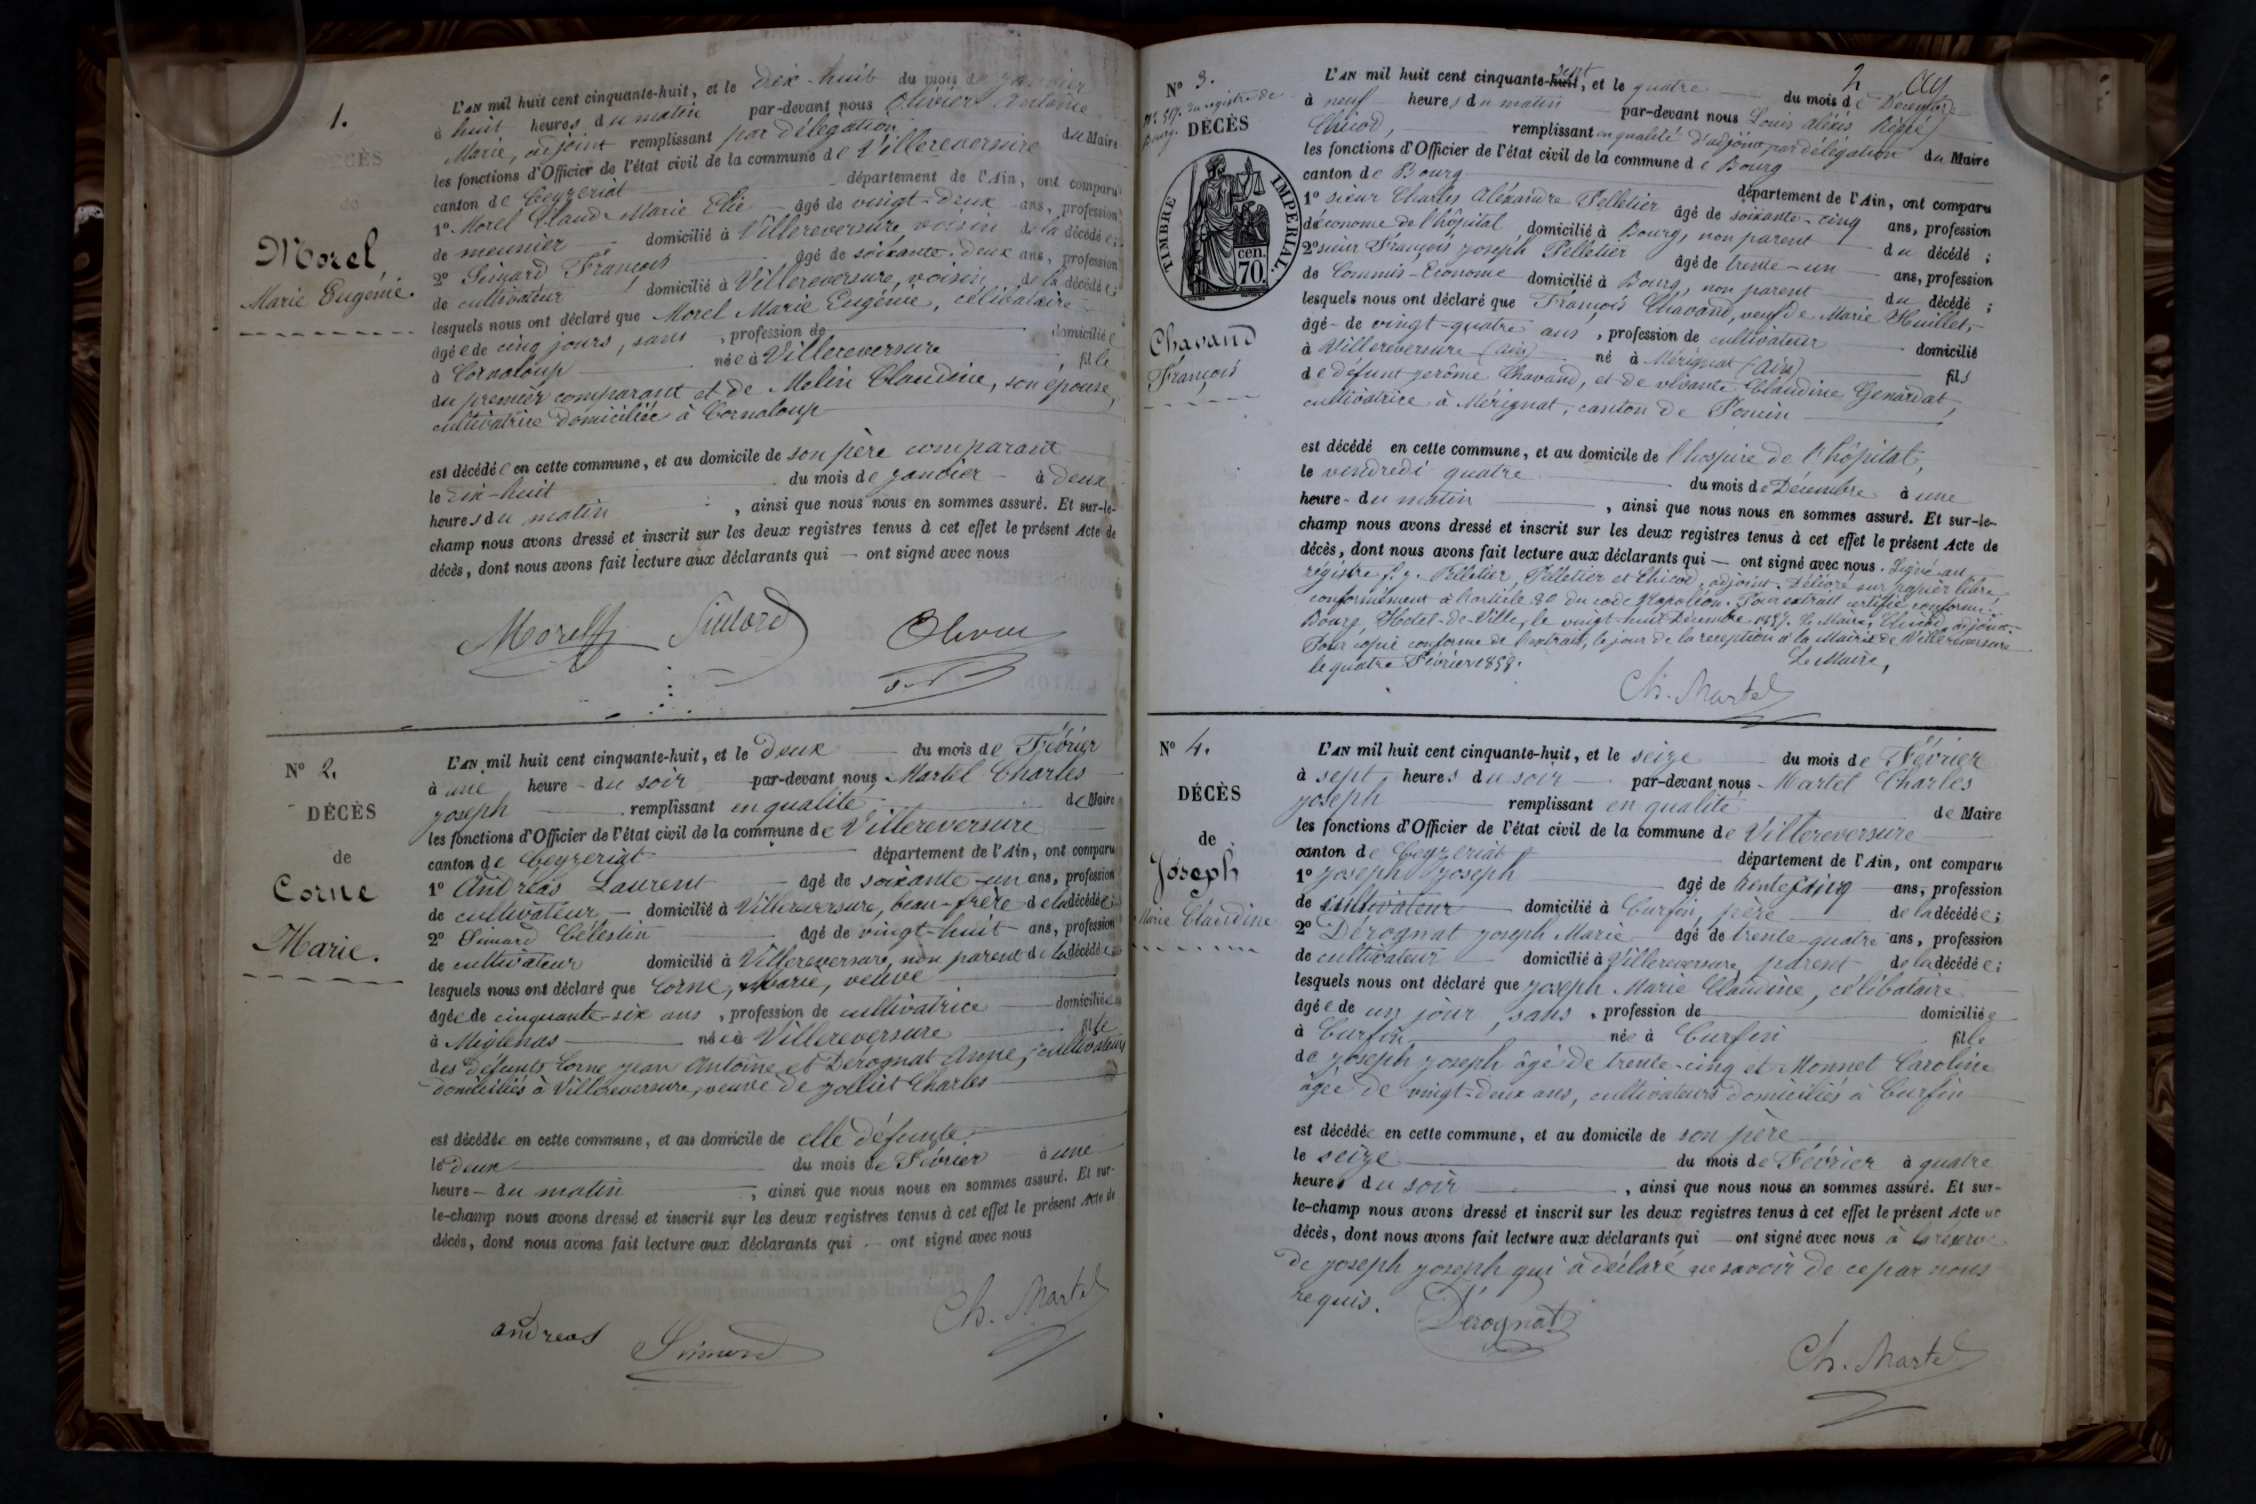 1.
DÉCÈS
de
Morel
Marie Eugénie.
L'AN mil huit cent cinquante-huit, et le dix-huit du mois de janvier
à huit heures du matin par-devant nous Olivier Antoine
Marie, adjoint remplissant par délégation du Maire
les fonctions d'Officier de l'état civil de la commune de Villereversure
canton de Ceyzeriat département de l'Ain, ont comparu
1° Morel Claude Marie Elie âgé de vingt-deux ans, profession
de meunier domicilié à Villereversure, voisin de la décédée;
2° Simard François âgé de soixante-deux ans, profession
de cultivateur domicilié à Villereversure, voisin de la décédée;
lesquels nous ont déclaré que Morel Marie Eugénie, célibataire
âgée de cinq jours, sans, profession de domiciliée
à Cornaloup née à Villereversure, fille
du premier comparant et de Molin Claudine, son épouse,
cultivatrice domiciliée à Cornaloup
est décédée en cette commune, et au domicile de son père comparant
le dix-huit du mois de janvier à deux
heures du matin, ainsi que nous nous en sommes assuré. Et sur-le-
champ nous avons dressé et inscrit sur les deux registres tenus à cet effet le présent Acte de
décès, dont nous avons fait lecture aux déclarants qui — ont signé avec nous
Morel Simard Olivier
N° 2.
DÉCÈS
de
Corne
Marie.
L'AN mil huit cent cinquante-huit, et le deux du mois de Février
à une heure du soir par-devant nous Martel Charles
joseph remplissant en qualité de Maire
les fonctions d'Officier de l'état civil de la commune de Villereversure
canton de Ceyzeriat département de l'Ain, ont comparu
1° Andréas Laurent âgé de soixante-un ans, profession
de cultivateur domicilié à Villereversure, beau-frère de la décédée;
2° Simard Célestin âgé de vingt-huit ans, profession
de cultivateur domicilié à Villereversure, non parent de la décédée
lesquels nous ont déclaré que Corne, Marie, veuve
âgée de cinquante-six ans, profession de cultivatrice domiciliée
à Miglenas née à Villereversure fille
des défunts Corne jean Antoine et Derognat Anne, cultivateurs
domiciliés à Villereversure, veuve de jolliet Charles
est décédée en cette commune, et au domicile de elle défunte
le deux du mois de Février à une
heure du matin, ainsi que nous nous en sommes assuré. Et sur-
le-champ nous avons dressé et inscrit sur les deux registres tenus à cet effet le présent Acte de
décès, dont nous avons fait lecture aux déclarants qui — ont signé avec nous
andreas Simard Ch. Martel
2
N° 3.
N° 517. du registre de
Bourg.
DÉCÈS
TIMBRE IMPERIAL.
cen.
70.
Chavand
François
L'AN mil huit cent cinquante-huit sept, et le quatre du mois de Décembre
à neuf heures du matin par-devant nous Louis Aléxis
Chicod, remplissant en qualité d'adjoint par délégation du Maire
les fonctions d'Officier de l'état civil de la commune de Bourg
canton de Bourg département de l'Ain, ont comparu
1° sieur Charles Aléxandre Pelletier âgé de soixante-cinq ans, profession
d'économe de l'hôpital, domicilié à Bourg, non parent du décédé;
2° sieur François joseph Pelletier âgé de trente-un ans, profession
de Commis-Econome domicilié à Bourg, non parent du décédé;
lesquels nous ont déclaré que François Chavand, veuf de Marie Huillet,
âgé de vingt-quatre ans, profession de cultivateur domicilié
à Villereversure (Ain) né à Mérignat (Ain) fils
de défunt jerôme Chavand, et de vivante Claudine Genardat,
cultivatrice à Mérignat, canton de Poncin
est décédé en cette commune, et au domicile de l'hospice de l'hôpital,
le vendredi quatre du mois de Décembre à une
heure du matin, ainsi que nous nous en sommes assuré. Et sur-le-
champ nous avons dressé et inscrit sur les deux registres tenus à cet effet le présent Acte de
décès, dont nous avons fait lecture aux déclarants qui — ont signé avec nous. Signé au
régistre f. j. Pelletier, Pelletier et Chicod, adjoint. Délivré sur papier libre,
conformément à l'article 80 du code Napoléon. Pour extrait certifié conforme.
Bourg, Hotel-de-Ville, le vingt-huit Décembre 1857. Le Maire, Chicod, adjoint.
Pour copie conforme de l'extrait, le jour de la reception à la Mairie de Villereversure
le quatre Février 1858.
Le Maire,
Ch. Martel
N° 4.
DÉCÈS
de
Joseph
Marie Claudine
L'AN mil huit cent cinquante-huit, et le seize du mois de Février
à sept heures du soir par-devant nous Martel Charles
joseph remplissant en qualité de Maire
les fonctions d'Officier de l'état civil de la commune de Villereversure
canton de Ceyzeriat département de l'Ain, ont comparu
1° joseph joseph âgé de trente cinq ans, profession
de cultivateur domicilié à Curfin, père de la décédée;
2° Dérognat joseph Marie âgé de trente-quatre ans, profession
de cultivateur domicilié à Villereversure, parent de la décédée;
lesquels nous ont déclaré que joseph Marie Claudine, célibataire
âgée de un jour, sans, profession de domiciliée
à Curfin née à Curfin fille
de joseph joseph âgé de trente-cinq et Monnet Caroline
âgée de vingt-deux ans, cultivateurs domiciliés à Curfin
est décédée en cette commune, et au domicile de son père
le seize du mois de Février à quatre
heures du soir, ainsi que nous nous en sommes assuré. Et sur-
le-champ nous avons dressé et inscrit sur les deux registres tenus à cet effet le présent Acte de
décès, dont nous avons fait lecture aux déclarants qui — ont signé avec nous à la réserve
de joseph joseph qui a déclaré ne savoir de ce par nous
requis.
Dérognat
Ch. Martel